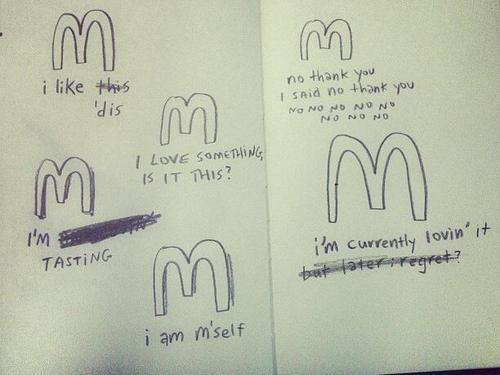 i like this
'dis
I LOVE SOMETHING,
IS IT THIS?
I'M
TASTING
i am m'self
no thank you
I said no thank you
NO NO NO NO NO
NO NO NO
i'm currently lovin' it
but later i regret?